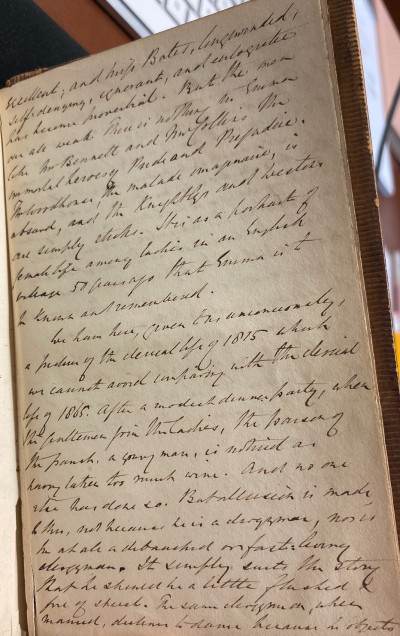 excellent; and Miss Bates, longwinded,
self-denying, ignorant, and
has become proverbial. But the men
are all weak. There is nothing in Emma
like Mr Bennett and Mr Collins the
immortal heroes of Pride and Prejudice.
Mr Woodhouse, the malade imaginaire, is
absurd, and the Knightleys and Westons
are simply sticks. It is as a portrait of
female life among ladies in an English
village 50 years ago that Emma is to
be known and remembered.
We have here, given to us unconsciously,
a picture of the clerical life of 1815 which
we cannot avoid comparing with the clerical
life of 1865. After a modest dinner party, when
the gentlemen join the ladies, the parson of
the parish, a young man, is noticed as
having taken too much wine. And no one
else has done so. But allusion is made
to this, not because he is a clergyman, nor is
he at all a debauched or fast-living
clergyman. It simply suits the story
that he should be a little flushed &
free of speech. The same clergyman, when
married, declines to dance because he objects